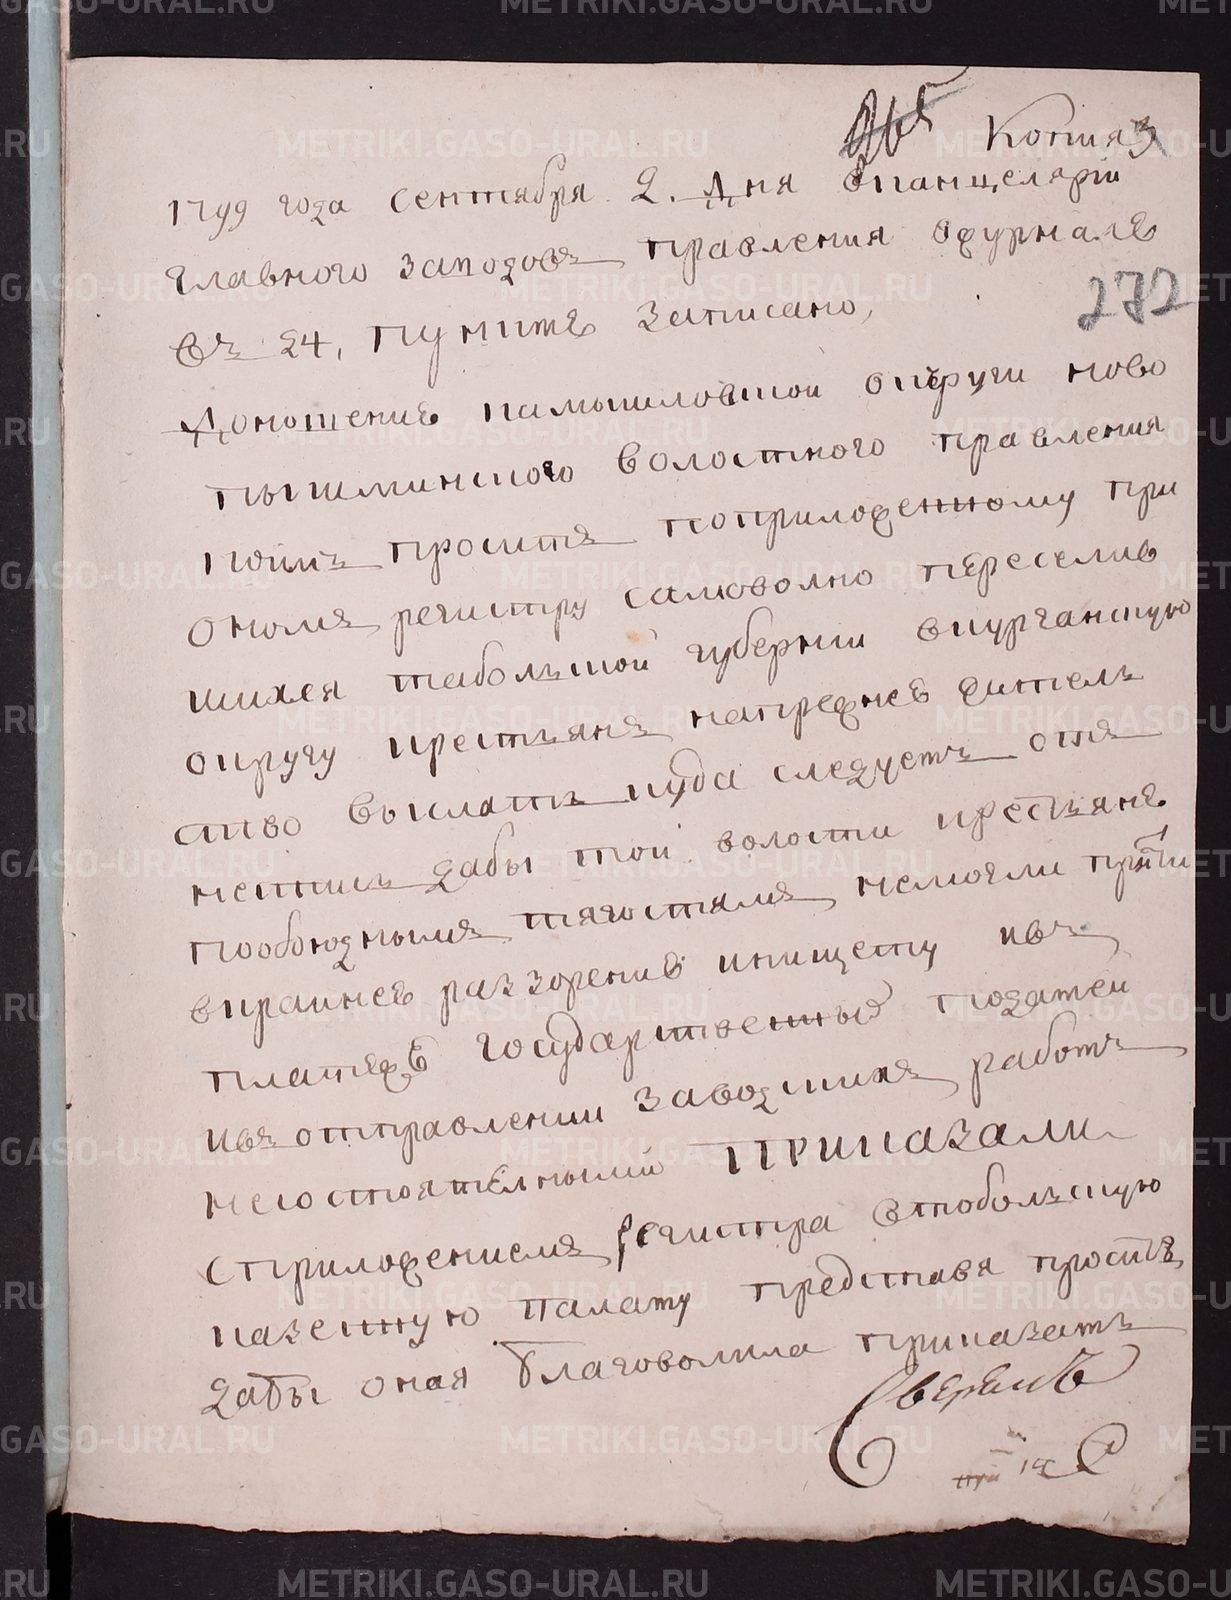 265 Копия 3
1799 года сентября 2. дня вканцелярии
главного заводовъ правления вжурнале
въ 24, пункте записано,
272
Доношение камышловской округи ново
пышминского волостного правления
коимъ проситъ поприложенному при
ономъ регистру самоволно переселив
шихся таболской губернии вкурганскую
округу крестьянъ напрежнее жителъ
ство выслать куда следуетъ отъ
нестись дабы той волости крестьяне
пообоюднымъ тягостямъ немогли притти
вкрайнее раззорение инищету ивъ
платеже государственныхъ податей
ивъ отправлении заводскихъ работъ
несостоятелными Приказали
Сприложениемъ регистра втоболскую
казенную палату представя проситъ
дабы оная благоволила приказать
METRIKI.GASO-URAL.RU